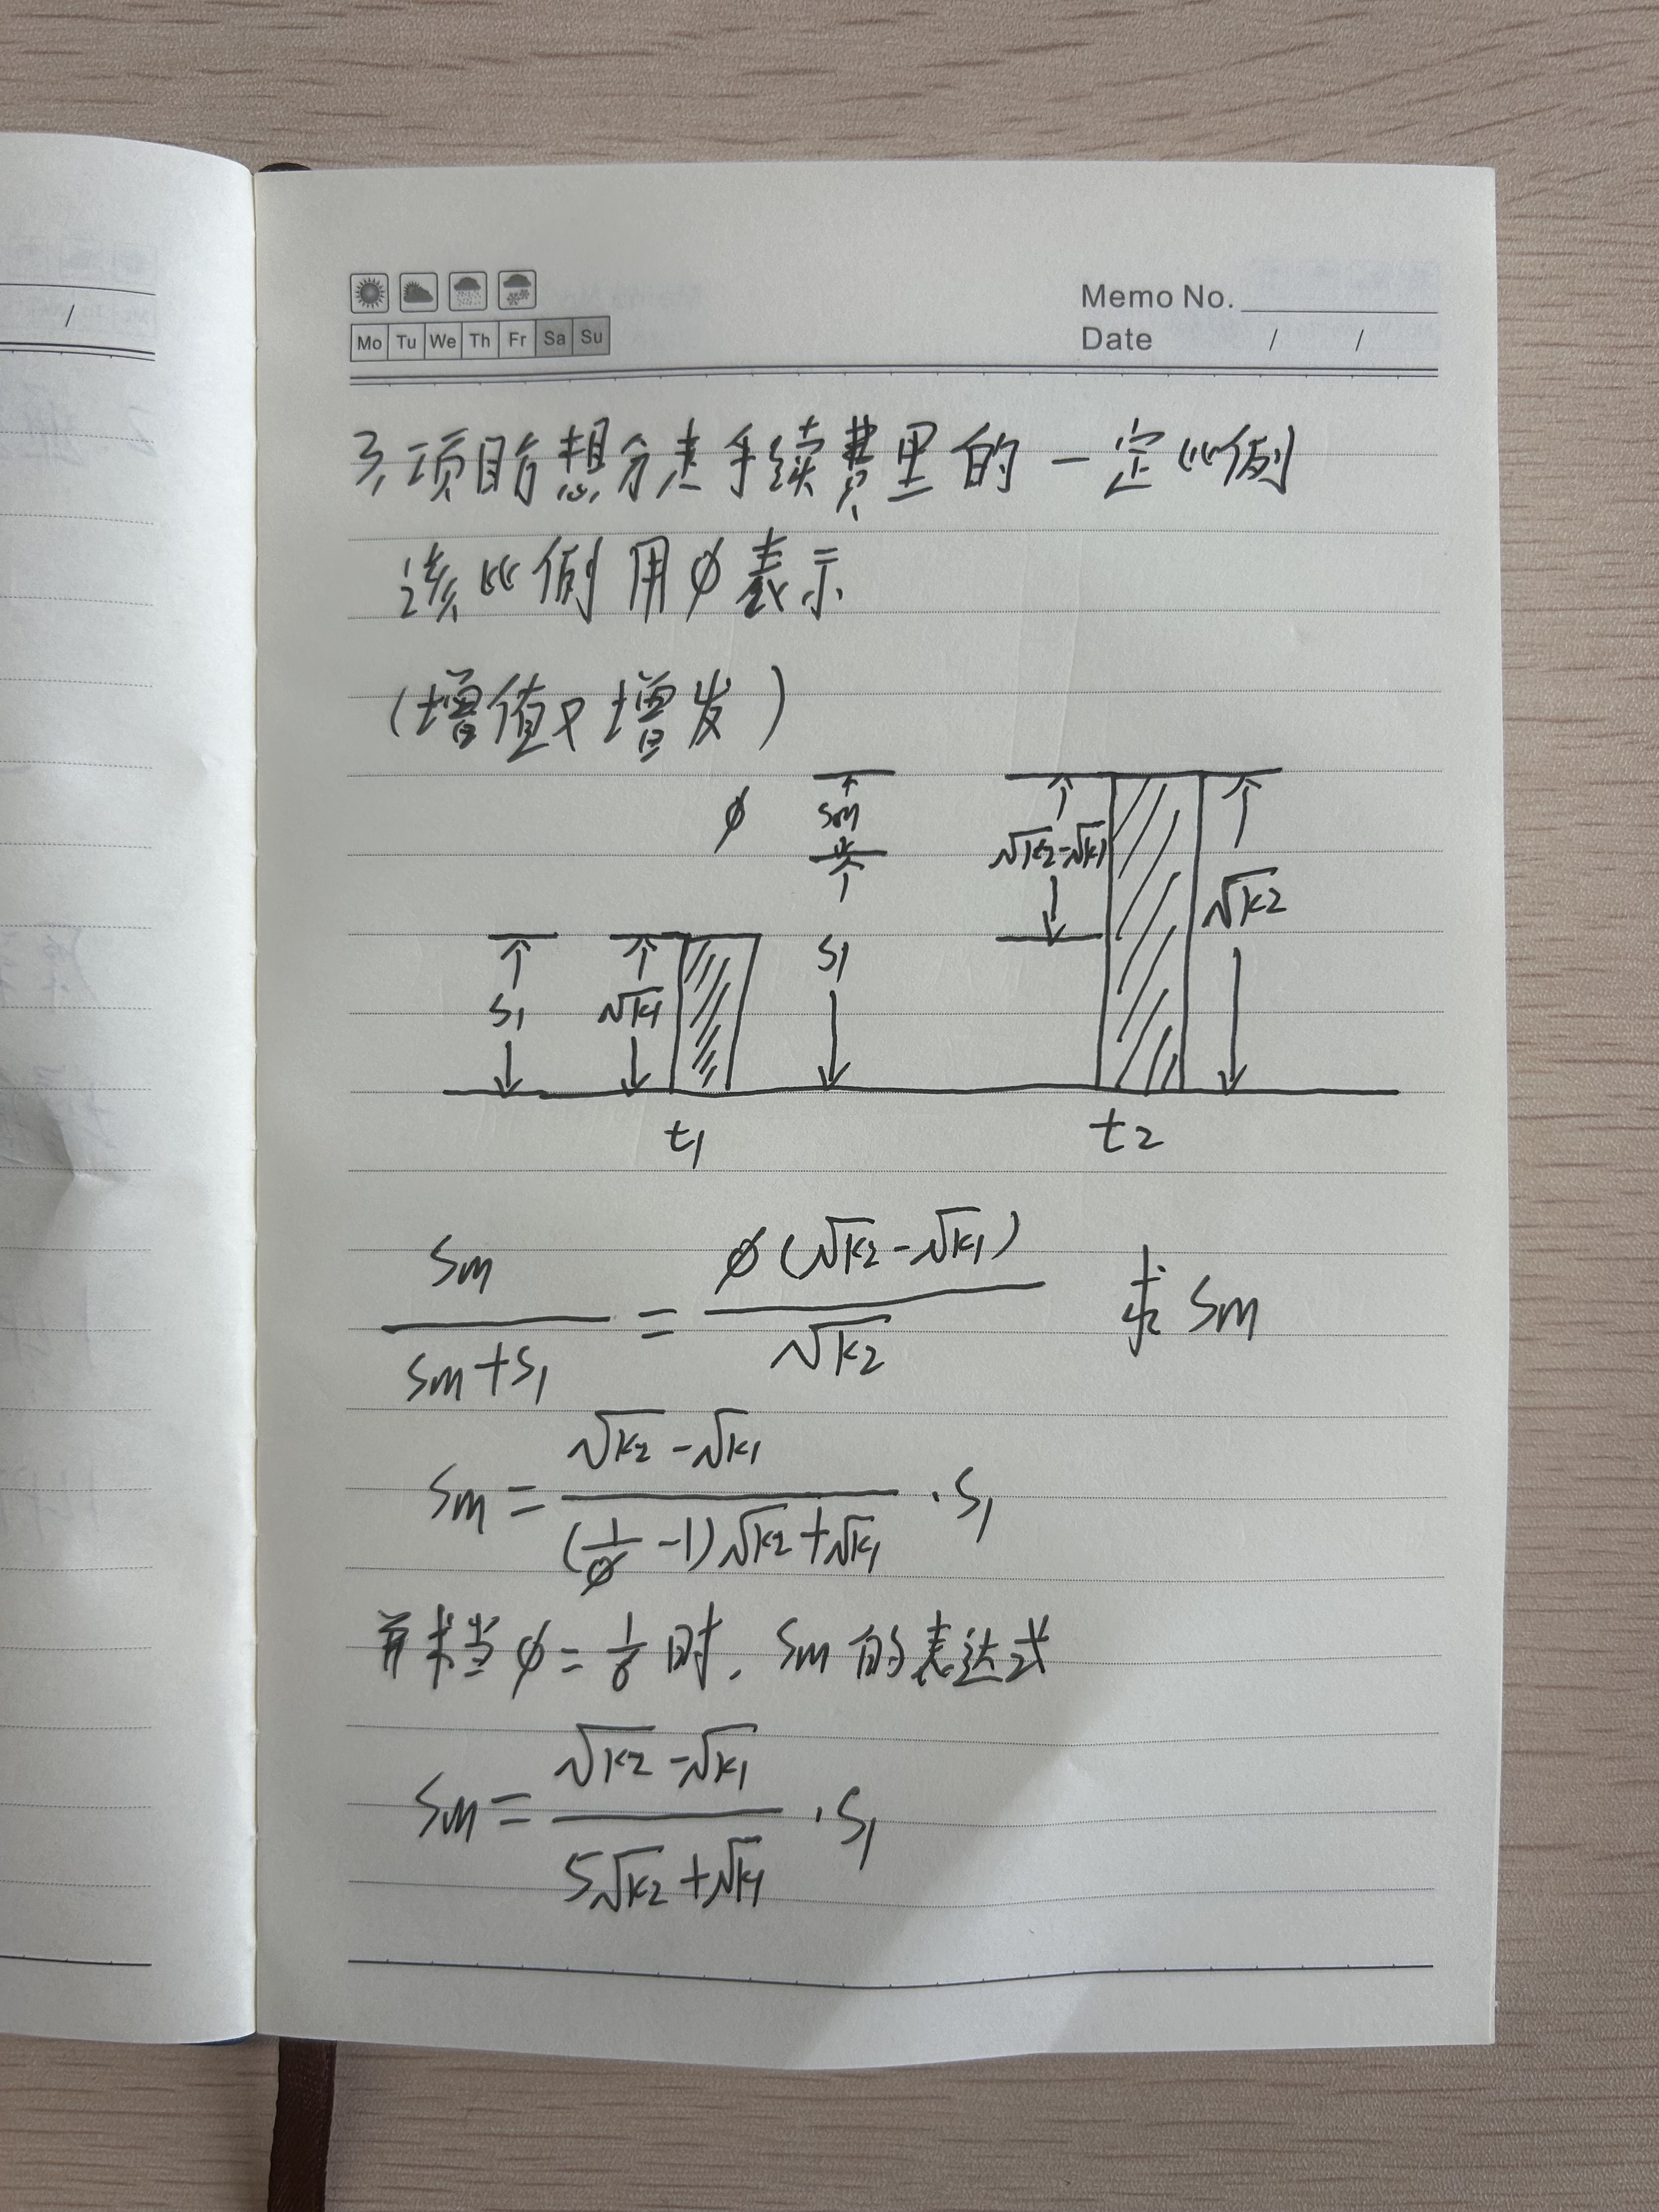 Mo Tu We Th Fr Sa Su
Memo No.
Date / /
/
3, 项目方想分走手续费里的一定比例
该比例用φ表示
(增值又增发)
φ Sm √k2-√k1
√k2
S1 √k1 S1
t1 t2
Sm/(Sm+S1) = φ(√k2-√k1)/√k2 求Sm
Sm = (√k2-√k1)/((1/φ-1)√k2+√k1) · S1
并求当φ=1/6时, Sm的表达式
Sm = (√k2-√k1)/(5√k2+√k1) · S1